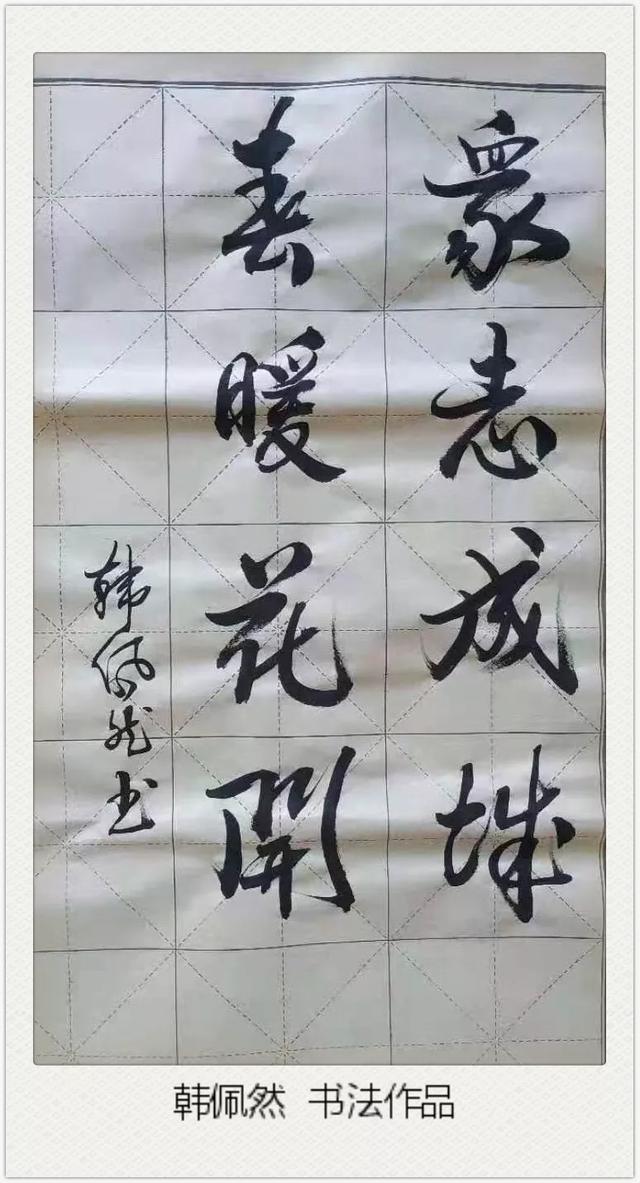 眾志成城
春暖花開
韩佩然书
韩佩然 书法作品